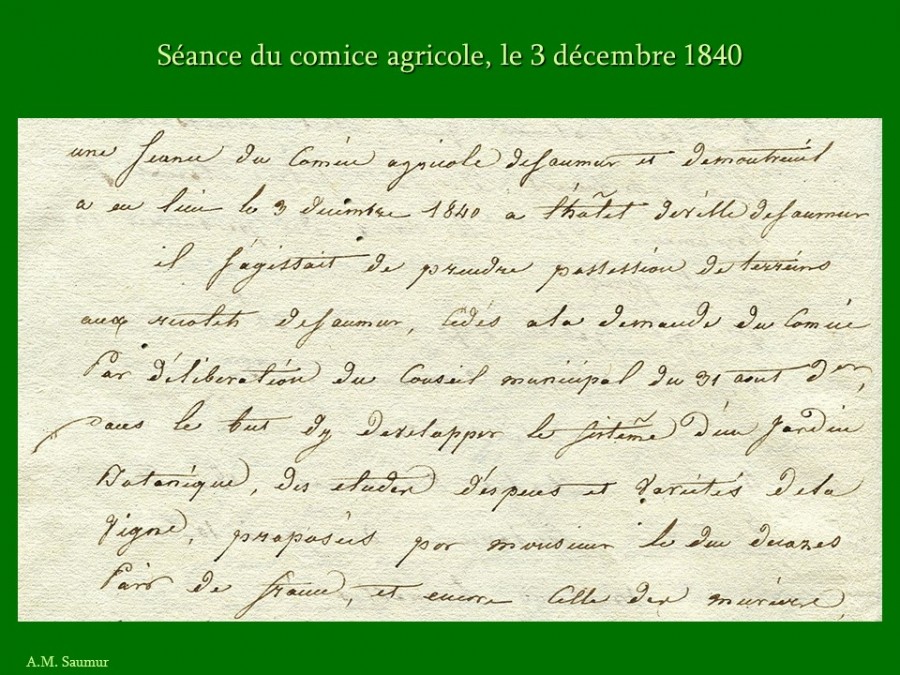 Séance du comice agricole, le 3 décembre 1840
une séance du Comice agricole desaumur et demontreuil
a eu lieu le 3 decembre 1840 a l'hôtel deville desaumur
il s'agissait de prendre possession de terreins
aux recolets desaumur, cédés ala demande du Comice
Par déliberation du Conseil municipal du 31 aout der,
dans le but d'y developper le sistême d'un Jardin
Botanique, des etudes d'especes et varietés dela
Vigne, proposées par monsieur le duc decazes
Pair de france, et encore celle des muriers,
A.M. Saumur